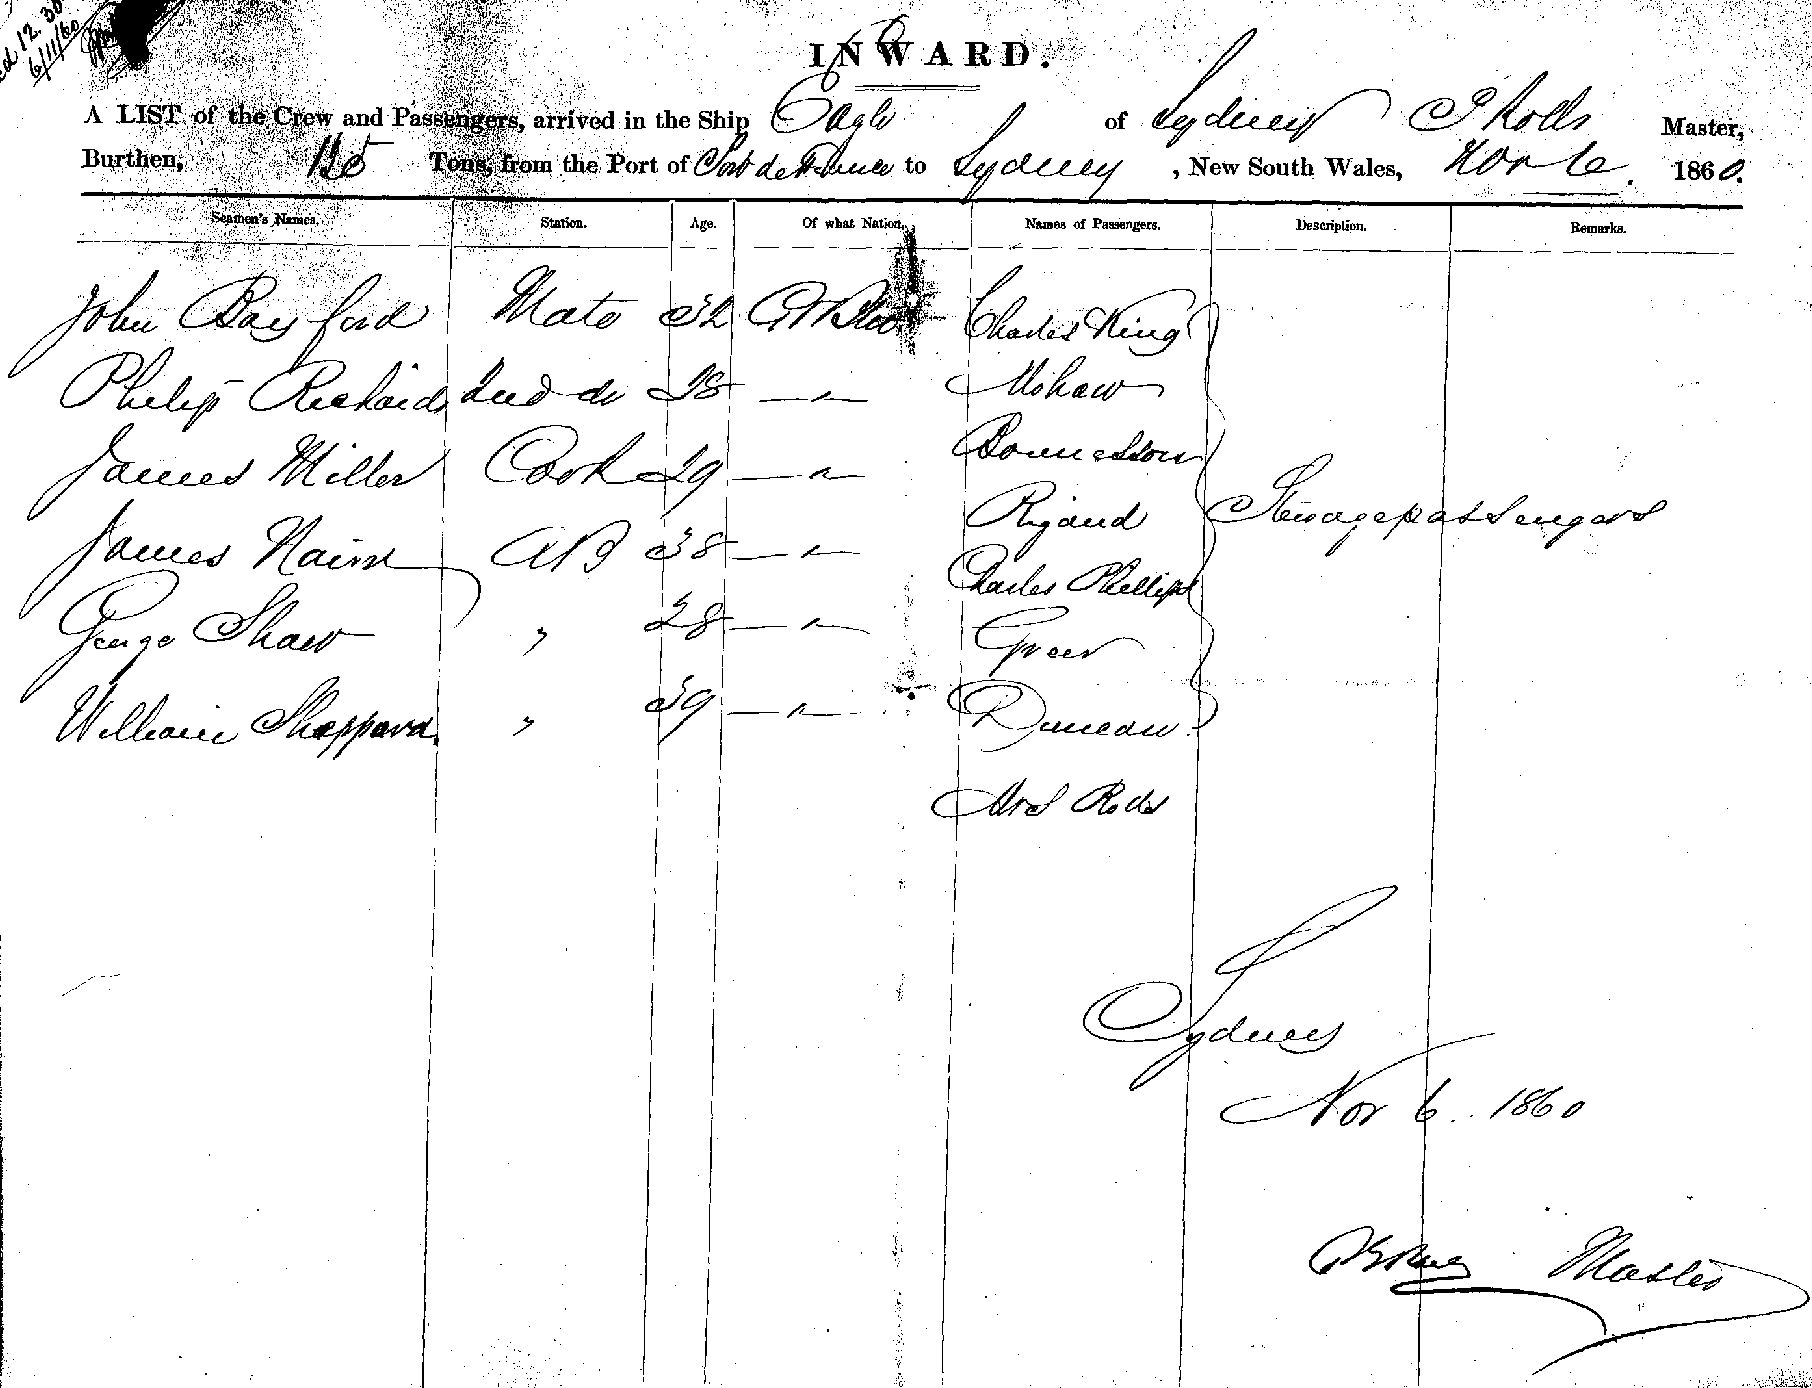 12.30
6/11/60
INWARD.
A LIST of the Crew and Passengers, arrived in the Ship Eagle of Sydney Master,
Burthen, 115 Tons, from the Port of Port de France to Sydney, New South Wales, Nov 6. 1860.
Seamen's Names. Station. Age. Of what Nation. Names of Passengers. Description. Remarks.
John Bayford Mate 32 Charles King
Philip Richards 2nd do 28 —"— Mohaw
James Miller Cook 29 —"— Bonnesson
James Nairn AB 38 —"— Rigaud Steragepassengers
George Shaw " 28 —"— Charles Phillips
William Sheppard " 39 —"— Greer
Duncan
Mrs
Sydney
Nov 6. 1860
Master